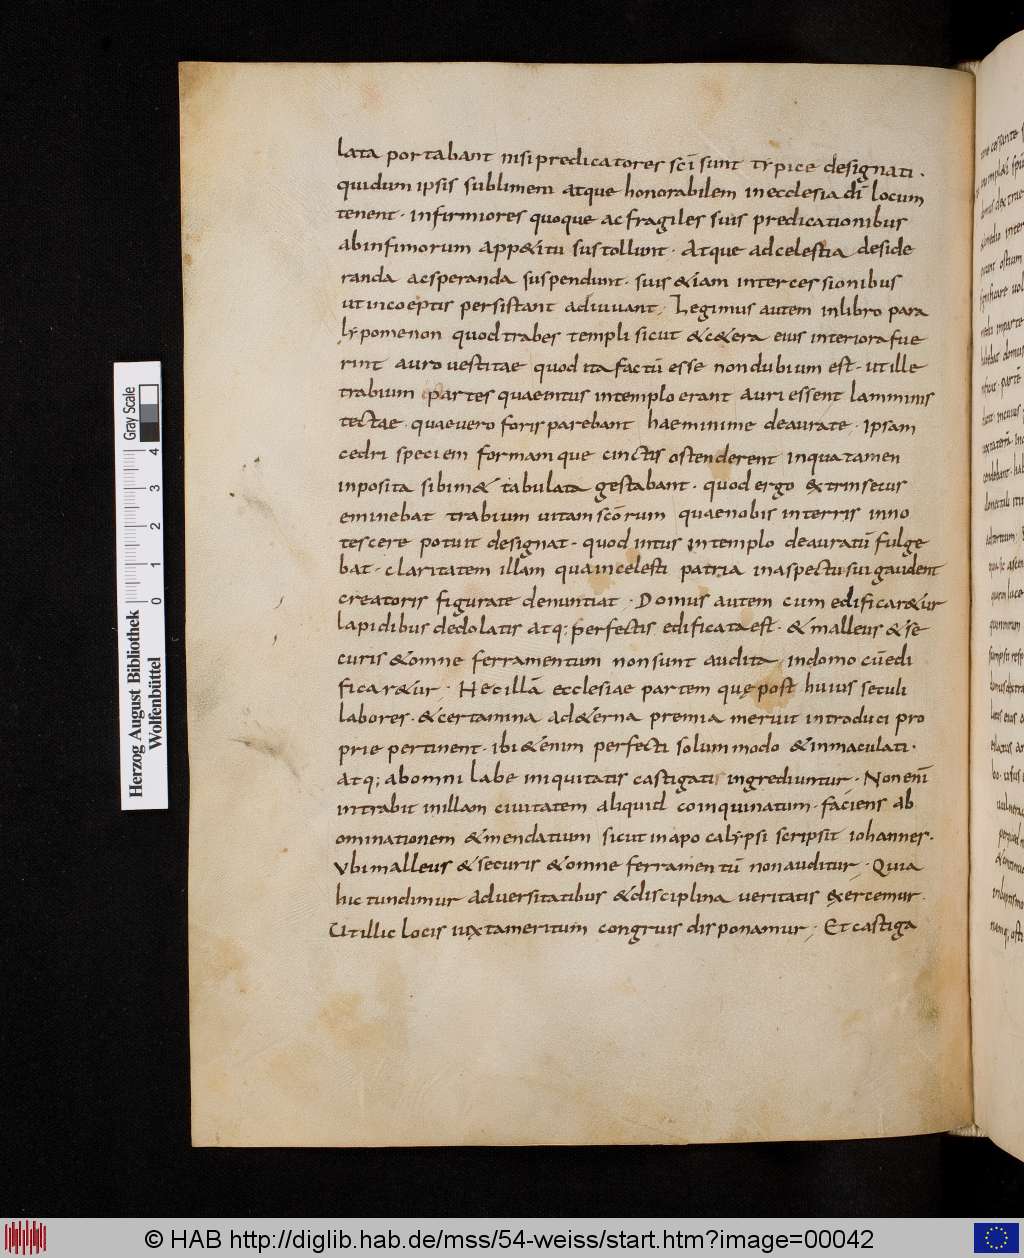 lata portabant nisi predicatores scī sunt typice designati.
quidum ipsis sublimem atque honorabilem in ecclesia dī locum
tenent. infirmiores quoque ac fragiles suis predicationibus
ab infimorum app&itu sustollunt. Atque ad celestia deside
randa ac speranda suspendunt. suis &iam intercessionibus
ut in coeptis persistant adiuvant; Legimus autem in libro para
lypomenon quod trabes templi sicut & c&era eius interiora fue
rint auro vestitae quod ita factū esse non dubium est. ut ille
trabium partes quae intus in templo erant auri essent lamminis
tectae. quae vero foris parebant hae minime deaurate. ipsam
cedri speciem formamque cinctis ostenderent in qua tamen
inposita sibim& tabulata gestabant. quod ergo extrinsecus
eminebat trabium vitam scōrum quae nobis in terris inno
tescere potuit designat. quod intus in templo deauratū fulge
bat. claritatem illam qua in celesti patria in aspectu sui gaudent
creatoris figurate denuntiat. Domus autem cum edificar&ur
lapidibus dedolatis atq; perfectis edificata est. & malleus & se
curis & omne ferramentum non sunt audita in domo cū edi
ficar&ur. Hec illā ecclesiae partem quę post huius seculi
labores. & certamina ad &erna premia meruit introduci pro
prie pertinent. ibi &enim perfecti solummodo & inmaculati.
atq; ab omni labe iniquitatis castigati ingrediuntur. Non enī
intrabit in illam civitatem aliquid coinquinatum. faciens ab
ominationem & mendatium sicut in apocalypsi scripsit iohannes.
Ubi malleus & securis & omne ferramentū non auditur. Quia
hic tundimur adversitatibus & disciplina veritatis exercemur.
Ut illic locis iuxta meritum congruis disponamur; Et castiga
Herzog August Bibliothek
Wolfenbüttel
Gray Scale
0 1 2 3 4
© HAB http://diglib.hab.de/mss/54-weiss/start.htm?image=00042